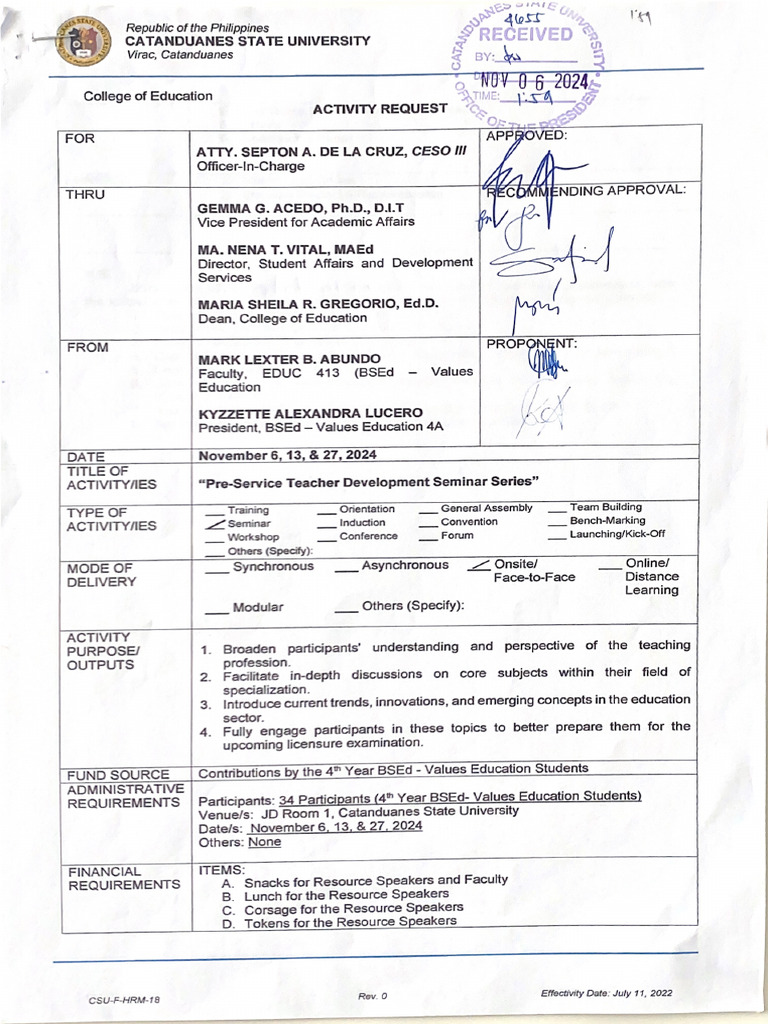 Republic of the Philippines
CATANDUANES STATE UNIVERSITY
Virac, Catanduanes
CATANDUANES STATE UNIVERSITY
4655
RECEIVED
BY:
NOV 06 2024
TIME: 1:59
OFFICE OF THE PRESIDENT
1:59
College of Education
ACTIVITY REQUEST
FOR
ATTY. SEPTON A. DE LA CRUZ, CESO III
Officer-In-Charge
APPROVED:
THRU
GEMMA G. ACEDO, Ph.D., D.I.T
Vice President for Academic Affairs
MA. NENA T. VITAL, MAEd
Director, Student Affairs and Development
Services
MARIA SHEILA R. GREGORIO, Ed.D.
Dean, College of Education
RECOMMENDING APPROVAL:
FROM
MARK LEXTER B. ABUNDO
Faculty, EDUC 413 (BSEd – Values
Education
KYZZETTE ALEXANDRA LUCERO
President, BSEd – Values Education 4A
PROPONENT:
DATE
November 6, 13, & 27, 2024
TITLE OF
ACTIVITY/IES
“Pre-Service Teacher Development Seminar Series”
TYPE OF
ACTIVITY/IES
___ Training ___ Orientation ___ General Assembly ___ Team Building
___ Seminar ___ Induction ___ Convention ___ Bench-Marking
___ Workshop ___ Conference ___ Forum ___ Launching/Kick-Off
___ Others (Specify):
MODE OF
DELIVERY
___ Synchronous ___ Asynchronous ___ Onsite/ ___ Online/
Face-to-Face Distance
Learning
___ Modular ___ Others (Specify):
ACTIVITY
PURPOSE/
OUTPUTS
1. Broaden participants' understanding and perspective of the teaching
profession.
2. Facilitate in-depth discussions on core subjects within their field of
specialization.
3. Introduce current trends, innovations, and emerging concepts in the education
sector.
4. Fully engage participants in these topics to better prepare them for the
upcoming licensure examination.
FUND SOURCE
Contributions by the 4th Year BSEd - Values Education Students
ADMINISTRATIVE
REQUIREMENTS
Participants: 34 Participants (4th Year BSEd- Values Education Students)
Venue/s: JD Room 1, Catanduanes State University
Date/s: November 6, 13, & 27, 2024
Others: None
FINANCIAL
REQUIREMENTS
ITEMS:
A. Snacks for Resource Speakers and Faculty
B. Lunch for the Resource Speakers
C. Corsage for the Resource Speakers
D. Tokens for the Resource Speakers
CSU-F-HRM-18
Rev. 0
Effectivity Date: July 11, 2022